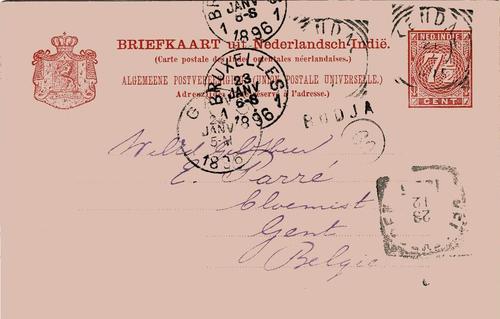 BRIEFKAART uit Nederlandsch-Indië.
(Carte postale des Indes orientales néerlandaises.)
ALGEMEENE POSTVEREENIGING (UNION POSTALE UNIVERSELLE.)
Adreszijde. (Côté réservé à l'adresse.)
NED. INDIE
7½
CENT
BRUXELLES
23
JANV
6-8
1896
1
JANV
8-S
1896
1
JANV
5-M
1896
BODJA
E. Sarré
Cloemist
Gent
Belgie
23
12